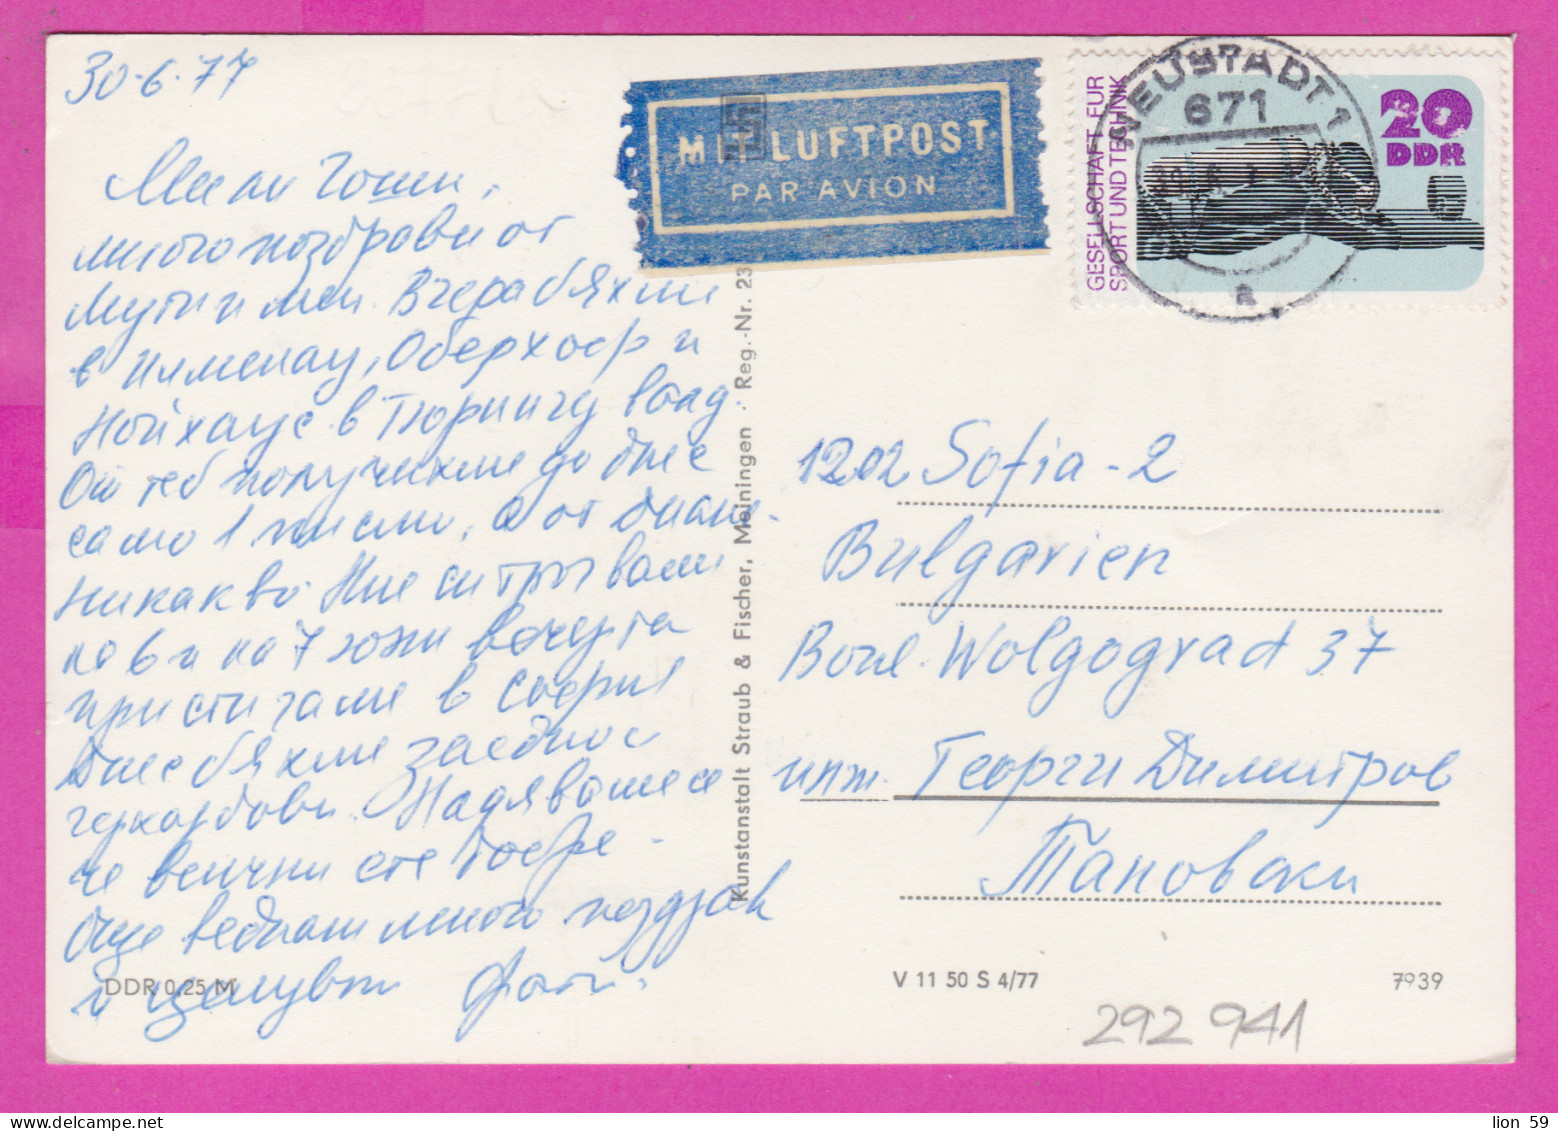 30.6.77
Мили Гоши,
много поздрави от
Мути и мен. Вчера бяхме
в Илменау, Оберхоф и
Нойхаус в Тюрингу валд.
От теб получихме до днес
само 1 писмо, а от
никакво. Ние тръгваме
на 6 и на 7 юли вечерта
пристигаме в София
Днес бяхме заедно с
герхардови. Надяваме се
че всички сте добре.
Още веднъж много поздрав
и целувки
MIT LUFTPOST
PAR AVION
GESELLSCHAFT FÜR
SPORT UND TECHNIK
20
DDR
NEUSTADT 1
671
a
Kunstanstalt Straub & Fischer, Meiningen · Reg.-Nr. 23
1202 Sofia-2
Bulgarien
Boul. Wolgograd 37
инж. Георги Димитров
Тановски
DDR 0,25 M
V 11 50 S 4/77
7939
292 941
lion 59